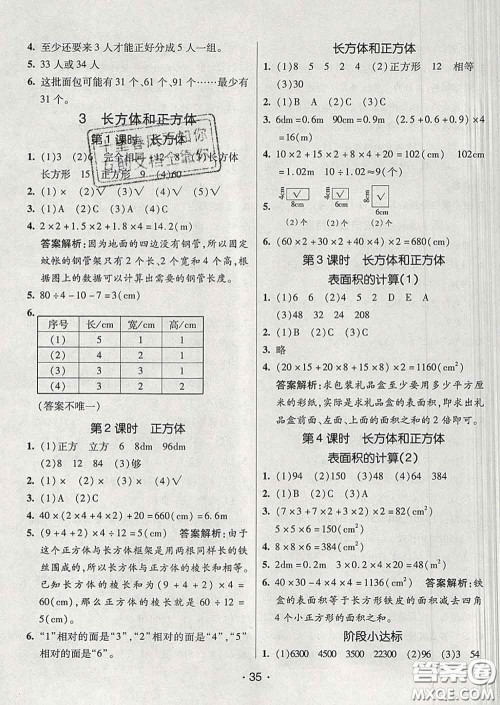 4. 至少还要来 3 人才能正好分成 5 人一组。
5. 33 34
6. 这批面包可能有 31 个、61 个、91 个……最少有
31 个。
3 长方体和正方体
第 1 课时 长方体
1. (1)3 (2)6 完全相同 12 8 (3)长方体
长方形 15 正方形 9 (4)60
2. (1)× (2)√ (3)× (4)√
3. (1)A (2)B (3)C
4. 2×2+1.5×2+1.8×4=14.2(m)
答案解析:因为地面的四边没有钢管,所以固定
蚊帐的钢管架只有 2 个长、2 个宽和 4 个高,
根据图上的数据可以计算出需要的钢管长度。
5. 80÷4-10-7=3(cm)
6.
序号 长/cm 宽/cm 高/cm
(1) 5 1 1
(2) 4 2 1
(3) 3 3 1
(4) 3 2 2
(答案不唯一)
第 2 课时 正方体
1. (1)正方 立方 6 8dm 96dm
(2)8 12 84 (3)够
2. (1)× (2)× (3)√
3. (1)A (2)C
4. 40×(2+4+4)×2+20=660(cm) m
5. (9+4+2)×4÷12=5(cm) 答案解析:由于
这个正方体与长方体框架是用两根同样长的铁
丝围成的,因此正方体与长方体的棱长和相等。
已知长方体的棱长和为(9+4+2)×4=60
(cm),那么正方体的棱长为 60÷12=5
(cm)。
6. “1”相对的面是“3”,“2”相对的面是“4”,“5”相
对的面是“6”。
长方体和正方体
1. (1)8 5 5 2 4 (2)正方形 12 相等
(3)30
2. (1)B (2)C (3)C
3. 6dm=60cm (60-8×4-4×4)÷4=3(cm)
4. 10×2+15×2+8×4+20=102(cm)
102cm=1.02m 1.02m>1m 不够
5.
(2)个 (2)个
6. (60×2+30×2+30×4)×12=3600(cm)
第 3 课时 长方体和正方体
表面积的计算(1)
1. (1)6 6 (2)4 5 2 D E A
(3)48 32 24 208
2. (1)A (2)C
3. 略
4. (20×15+20×8+15×8)×2=1160(cm²)
答案解析:求包装礼品盒至少要用多少平方厘
米的彩纸,实际是求长方体礼品盒的表面积,即
求出前面、左面、上面的面积之和的 2 倍即可。
第 4 课时 长方体和正方体
表面积的计算(2)
1. (1)94 (2)150 (3)24 (4)6
2. (1)B (2)C
3. (7×3+7×2+3×2)×2=82(cm²)
5×5×6=150(cm²)
4. 8×8×6=384(cm²)
5. 2dm=0.2m 3×0.2×4×20=48(m²)
6. 40×30-4×4×4=1136(cm²) 答案解析:铁
盒的表面积等于长方形铁皮的面积减去四角
4 个小正方形的面积。
阶段小达标
1. (1)6300 4500 35000 22300 (2)96 (3)3 54
· 35 ·
答案圈
MXQE.COM